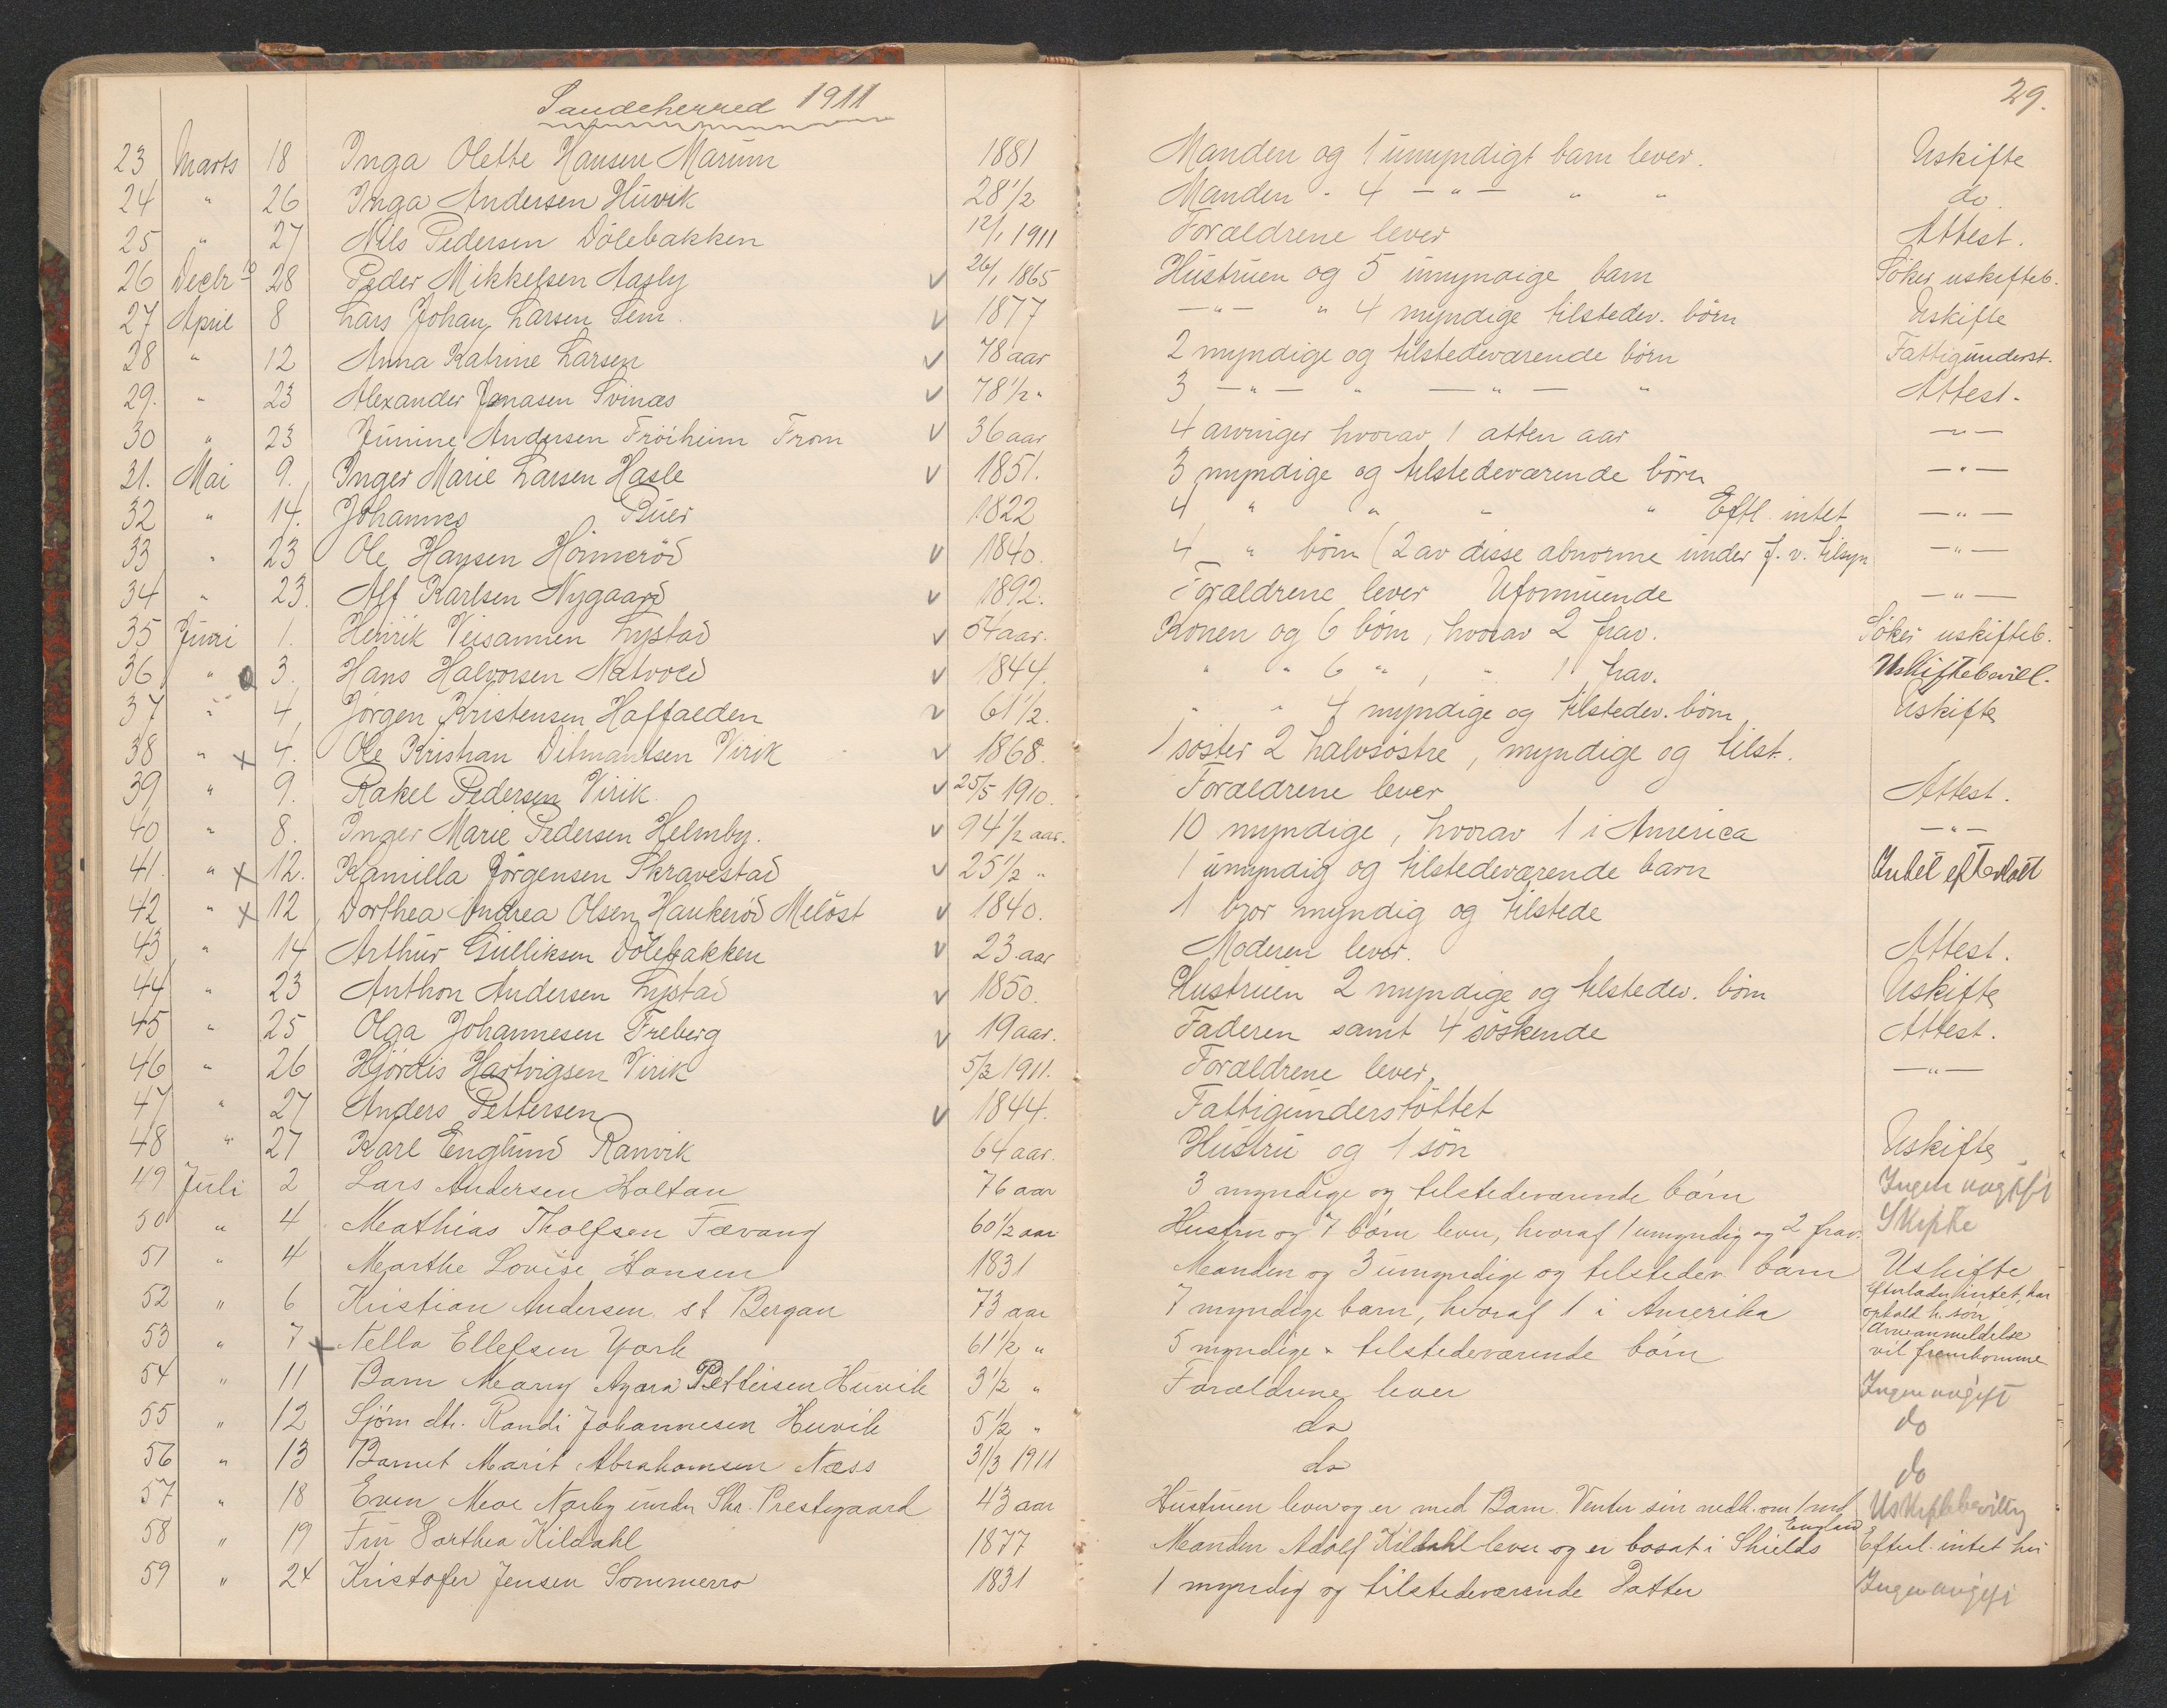 Sandeherred 1911
29.
23 Marts 18 Inga Olette Hansen Marum 1881 Manden og 1 umyndigt barn lever. Uskifte
24 " 26 Inga Andersen Huvik 28 1/2 Manden " 4 — " — " " do.
25 " 27 Nils Pedersen Dölebakken 12/1 1911 Forældrene lever Attest.
26 Decbr 10 28 Peder Mikkelsen Aasly v 26/1 1865 Hustruen og 5 umyndige barn Söker uskifteb.
27 April 8 Lars Johan Larsen Sem. v 1877 — " — " 4 myndige tilstedev. börn Uskifte
28 " 12 Anna Katrine Larsen v 78 aar 2 myndige og tilstedeværende börn Fattigunderst.
29. " 23 Alexander Jonasen Svinæs v 78 1/2 " 3 — " — " — " — " Attest.
30 " 23 Junine Andersen Fröiheim From v 36 aar 4 arvinger hvorav 1 atten aar — " —
31. Mai 9. Inger Marie Larsen Hasle v 1851. 3 myndige og tilstedeværende börn — " —
32 " 14. Johannes Buer 1822 4 " " " " Eftl. intet — " —
33 " 23 Ole Hansen Hörmeröd v 1840. 4 " börn (2 av disse abnorme under f. v. tilsyn — " —
34 " 23. Alf Karlsen Nygaard v 1892. Forældrene lever Uformuende — " —
35 Juni 1. Henrik Lystad v 54 aar. Konen og 6 börn, hvorav 2 frav. Söker uskifteb.
36 " 3. Hans Halvorsen Natvold v 1844. " " 6 ", " 1 frav. Uskiftebevill.
37 " 4, Jörgen Kristensen Haffalden v 61 1/2. " " 4 myndige og tilstedev. börn Uskifte
38 " x 4. Ole Kristian Ditmantsen Virik v 1868. 1 söster 2 halvsöstre, myndige og tilst.
39 " 9. Rakel Pedersen Virik. v 25/5 1910. Forældrene lever Attest.
40 " 8. Inger Marie Pedersen Helmby. v 94 1/2 aar. 10 myndige, hvorav 1 i America — " —
41. " x 12. Kamilla Jörgensen Skravestad v 25 1/2 " 1 umyndig og tilstedeværende barn Intet efterladt
42 " x 12 Dorthea Andrea Olsen Haukeröd Melöst v 1840. 1 bror myndig og tilstede
43 " 14 Arthur Gulliksen Dölebakken v 23 aar Moderen lever. Attest.
44 " 23 Anthon Andersen Lystad v 1850. Hustruen 2 myndige og tilstedev. börn Uskifte
45 " 25 Olga Johannesen Freberg v 19 aar. Faderen samt 4 söskende Attest.
46 " 26 Hjördis Hartvigsen Virik 5/3 1911. Forældrene lever. — " —
47 " 27 Anders Pettersen v 1844. Fattigunderstöttet
48 " 27 Karl Englund Ranvik 64 aar. Hustru og 1 sön Uskifte
49 Juli 2 Lars Andersen Haltan 76 aar 3 myndige og tilstedeværende börn Ingen avgift
50 " 4 Mathias Tholfsen Fævang 60 1/2 aar Hustru og 7 börn lever, hvoraf 1 umyndig og 2 frav. Skifte
51 " 4 Marthe Lovise Hansen 1831 Manden og 3 umyndige og tilstedev. barn Uskifte
52 " 6 Kristian Andersen st Bergan 73 aar 7 myndige barn, hvoraf 1 i Amerika Efterlader intet, har ophold h. sön
53 " 7 x Nella Ellefsen York 61 1/2 " 5 myndige " tilstedeværende börn Arveanmeldelse vil fremkomme
54 " 11 Barn Marry Agora Pettersen Huvik 3 1/2 " Forældrene lever Ingen avgift
55 " 12 Sjöm dtr. Randi Johannesen Huvik 5 1/2 " do do
56 " 13 Barnet Marit Abrahamsen Næss 31/3 1911 do do
57 " 18 Even Moe Nærby under Skr. Prestegaard 43 aar Hustruen lever og er med Barn. Venter sin nedk. om 1 md Uskiftebevilling
58 " 19 Fru Dorthea Kildahl 1877 Manden Adolf Kildahl lever og er bosat i Shields England Efterl. intet her
59 " 24 Kristofer Jensen Sommerro 1831 1 myndig og tilstedeværende Datter Ingen avgift